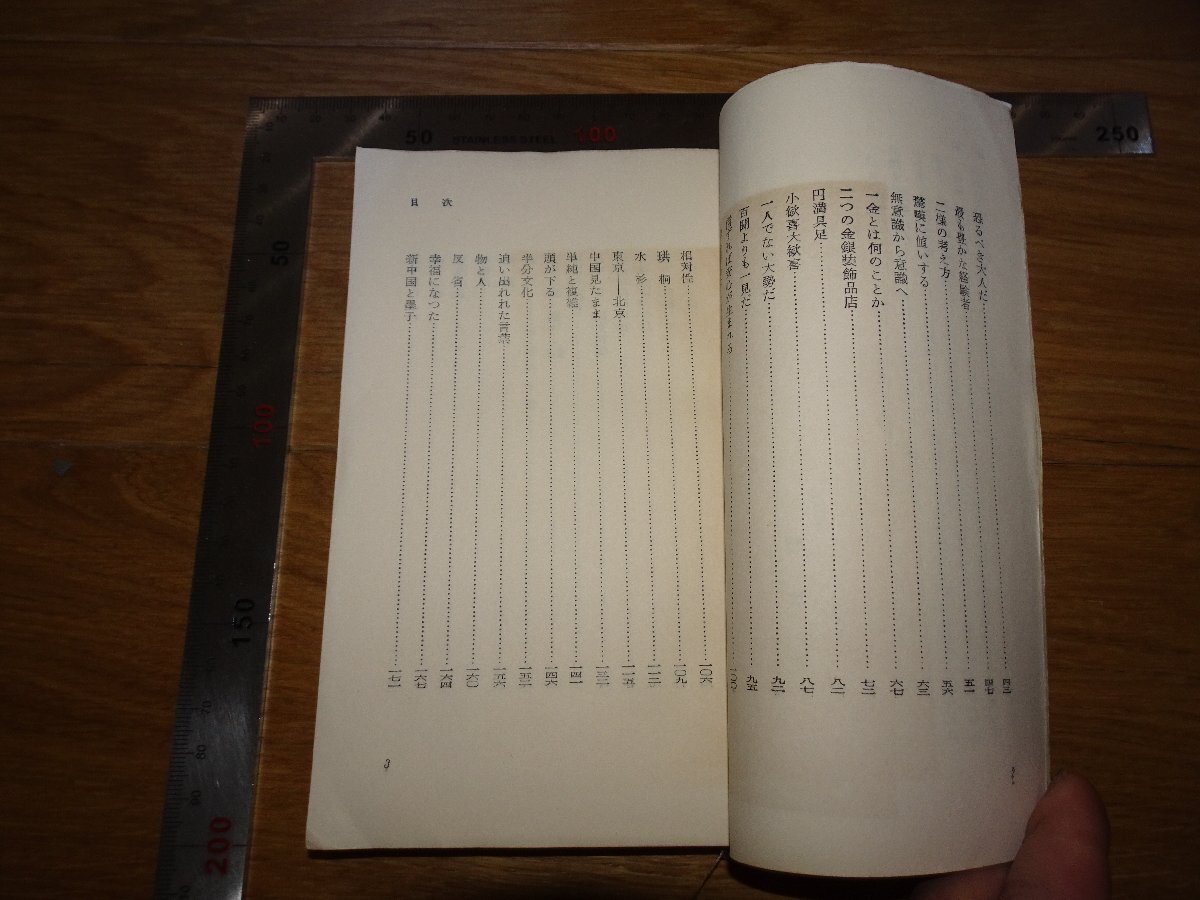 恐るべき大人だ……四三
最も豊かな経験者……四七
二様の考え方……五一
驚嘆に値いする……五六
無意識から意識へ……六三
一金とは何のことか……六七
二つの金銀装飾品店……七二
円満具足……八二
小歓喜大歓喜……八七
一人でない大勢だ……九二
百聞よりも一見だ……九五
目次
相対性……一〇六
珙桐……一〇九
水杉……一一二
東京——北京……一一五
中国見たまま……
単純と複雑……一四一
頭が下る……一四六
半分文化……一五三
追い出れれた言葉……一五六
物と人……一六〇
反省……一六四
幸福になつた……一六七
新中国と墨子……一七一
3
STAINLESS STEEL
50
100
250
50
100
150
200